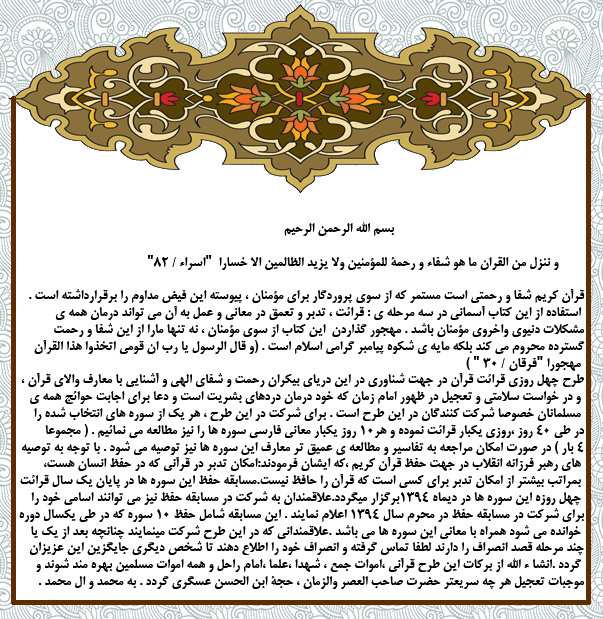 بسم الله الرحمن الرحیم
و ننزل من القران ما هو شفاء و رحمة للمؤمنین ولا یزید الظالمین الا خسارا "اسراء / ۸۲"
قرآن کریم شفا و رحمتی است مستمر که از سوی پروردگار برای مؤمنان ، پیوسته این فیض مداوم را برقرارداشته است .
استفاده از این کتاب آسمانی در سه مرحله ی : قرائت ، تدبر و تعمق در معانی و عمل به آن می تواند درمان همه ی
مشکلات دنیوی واخروی مؤمنان باشد . مهجور گذاردن این کتاب از سوی مؤمنان ، نه تنها مارا از این شفا و رحمت
گسترده محروم می کند بلکه مایه ی شکوه پیامبر گرامی اسلام است . (و قال الرسول یا رب ان قومی اتخذوا هذا القرآن
مهجورا "فرقان / ۳۰ " )
طرح چهل روزی قرائت قرآن در جهت شناوری در این دریای بیکران رحمت و شفای الهی و آشنایی با معارف والای قرآن ،
و در خواست سلامتی و تعجیل در ظهور امام زمان که خود درمان دردهای بشریت است و دعا برای اجابت حوائج همه ی
مسلمانان خصوصا شرکت کنندگان در این طرح است . برای شرکت در این طرح ، هر یک از سوره های انتخاب شده را
در طی ۴۰ روز ،روزی یکبار قرائت نموده و هر۱۰ روز یکبار معانی فارسی سوره ها را نیز مطالعه می نمائیم . ( مجموعا
۴ بار ) در صورت امکان مراجعه به تفاسیر و مطالعه ی عمیق تر معارف این سوره ها نیز توصیه می شود . با توجه به توصیه
های رهبر فرزانه انقلاب در جهت حفظ قرآن کریم ،که ایشان فرمودند:امکان تدبر در قرآنی که در حفظ انسان هست،
بمراتب بیشتر از امکان تدبر برای کسی است که قرآن را حافظ نیست.مسابقه حفظ این سوره ها در پایان یک سال قرائت
چهل روزه این سوره ها در دیماه ۱۳۹۴برگزار میگردد.علاقمندان به شرکت در مسابقه حفظ نیز می توانند اسامی خود را
برای شرکت در مسابقه حفظ در محرم سال ۱۳۹۴ اعلام نمایند . این مسابقه شامل حفظ ۱۰ سوره که در طی یکسال دوره
خوانده می شود همراه با معانی این سوره ها می باشد .علاقمندانی که در این طرح شرکت مینمایند چنانچه بعد از یک یا
چند مرحله قصد انصراف را دارند لطفا تماس گرفته و انصراف خود را اطلاع دهند تا شخص دیگری جایگزین این عزیزان
گردد .انشا ء الله از برکات این طرح قرآنی ،اموات جمع ، شهدا ،علما ،امام راحل و همه اموات مسلمین بهره مند شوند و
موجبات تعجیل هر چه سریعتر حضرت صاحب العصر والزمان ، حجة ابن الحسن عسگری گردد . به محمد و ال محمد .